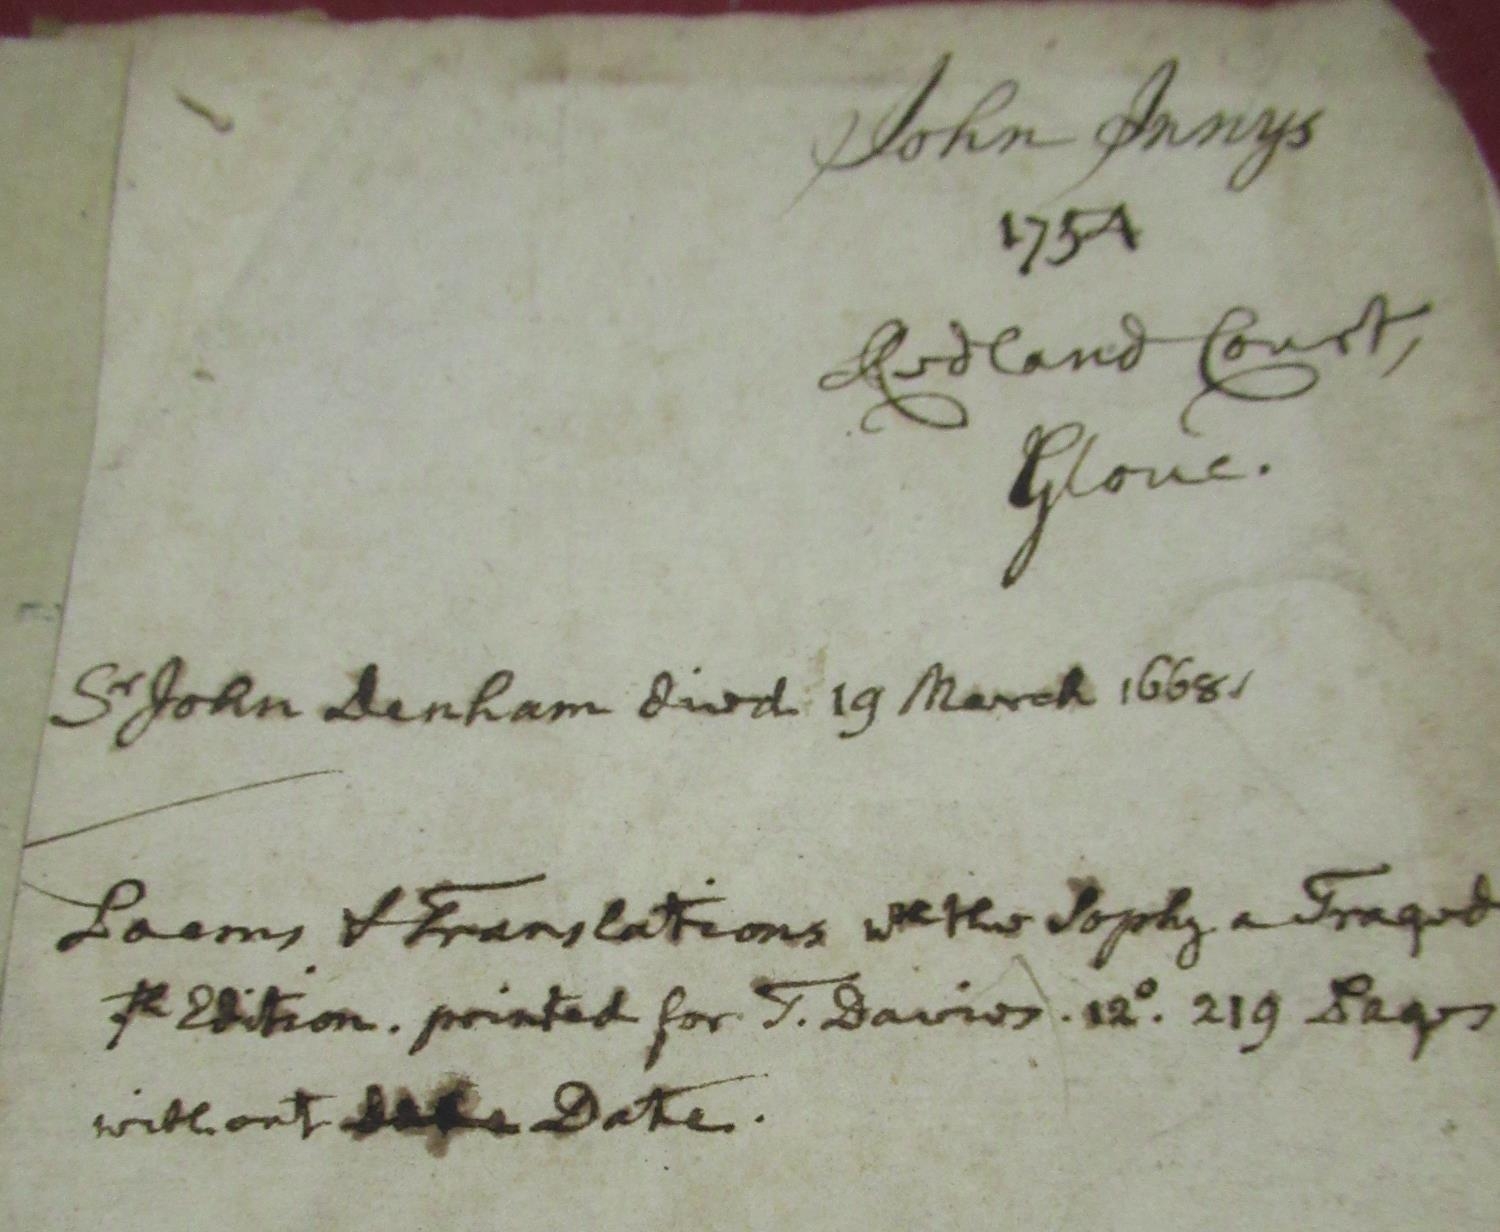 John Innys
1754
Redland Court,
Glouc.
Sr John Denham died 19 March 1668.
Poems & Translations wth the Sophy a Traged
7th Edition. printed for T. Davies. 12o. 219 Pages
without Date.